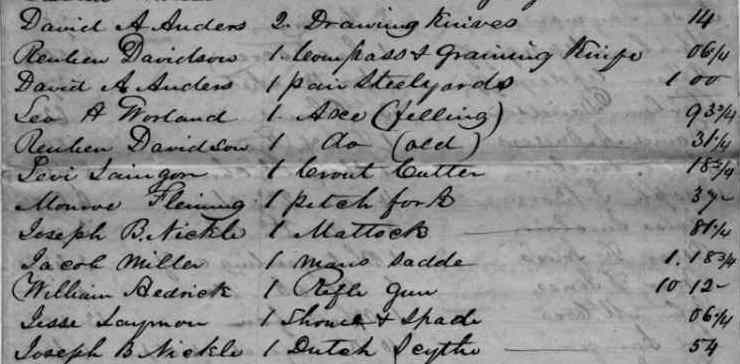 David A Anders 2 Drawing Knives 14
Reuben Davidson 1 Compass & Graining Knife 06¼
David A Anders 1 pair Steelyards 1 00
Geo A Worland 1 Axe (felling) 93¾
Reuben Davidson 1 do (old) 31¼
Levi 1 Crout Cutter 18¾
Monroe Fleming 1 pitch fork 37
Joseph B. Nickle 1 Mattock 81¼
Jacob Miller 1 mans Sadde 1. 18¾
William Hedrick 1 Rifle Gun 10 12
Jesse Laymon 1 Shovel & Spade 06¼
Joseph B Nickle 1 Dutch Scythe 54